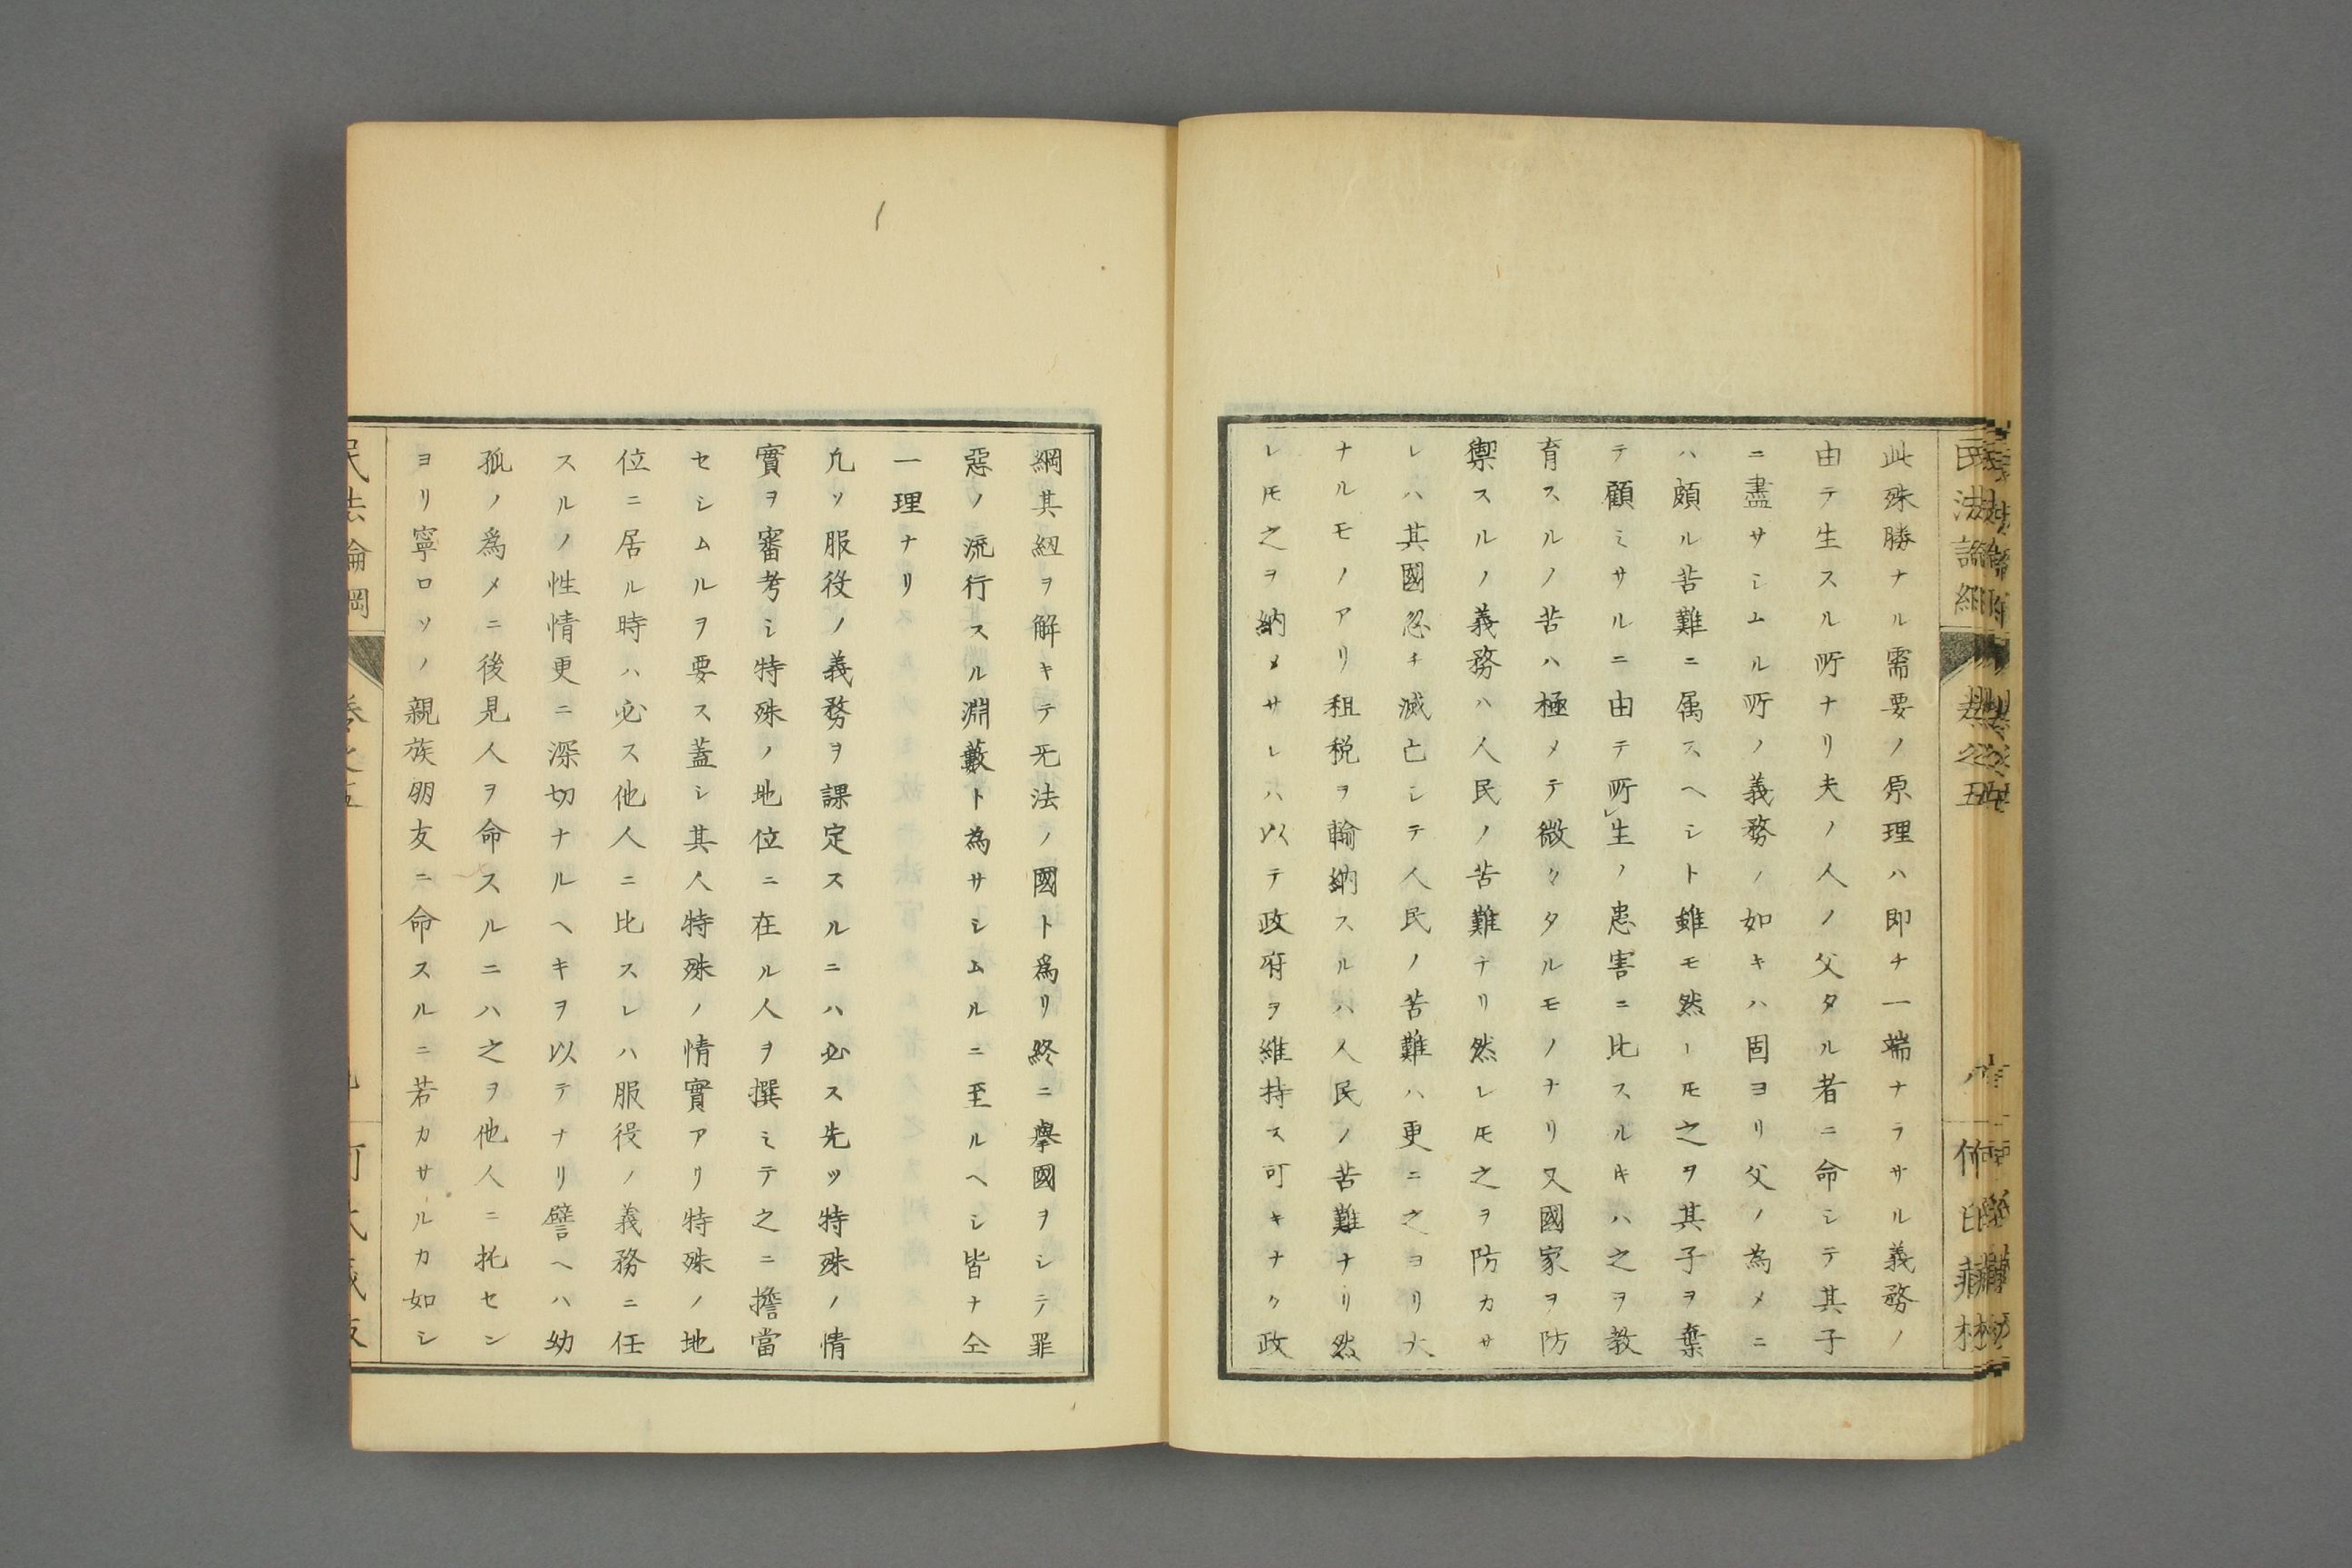 此殊勝ナル需要ノ原理ハ即チ一端ナラサル義務ノ
由テ生スル所ナリ夫ノ人ノ父タル者ニ命シテ其子
ニ盡サシムル所ノ義務ノ如キハ固ヨリ父ノ為メニ
ハ頗ル苦難ニ属スヘシト雖モ然ーモ之ヲ其子ヲ棄
テ顧ミサルニ由テ所レ生ノ患害ニ比スルキハ之ヲ教
育スルノ苦ハ極メテ微々タルモノナリ又國家ヲ防
禦スルノ義務ハ人民ノ苦難ナリ然レ𪜈之ヲ防カサ
レハ其國忽チ滅亡シテ人民ノ苦難ハ更ニ之ヨリ大
ナルモノアリ租税ヲ輸納スルハ人民ノ苦難ナリ然
レ𪜈之ヲ納メサレハ以テ政府ヲ維持ス可キナク政
綱其紐ヲ解キテ无法ノ國ト爲リ終ニ擧國ヲシテ罪
惡ノ流行スル淵藪ト為サシムルニ至ルヘシ皆ナ仝
一理ナリ
凢ソ服役ノ義務ヲ課定スルニハ必ス先ツ特殊ノ情
實ヲ審考シ特殊ノ地位ニ在ル人ヲ撰ミテ之ニ擔當
セシムルヲ要ス蓋シ其人特殊ノ情實アリ特殊ノ地
位ニ居ル時ハ必ス他人ニ比スレハ服役ノ義務ニ任
スルノ性情更ニ深切ナルヘキヲ以テナリ譬ヘハ幼
孤ノ爲メニ後見人ヲ命スルニハ之ヲ他人ニ托セン
ヨリ寧ロソノ親族朋友ニ命スルニ若カサルカ如シ
民法論綱
卷之五